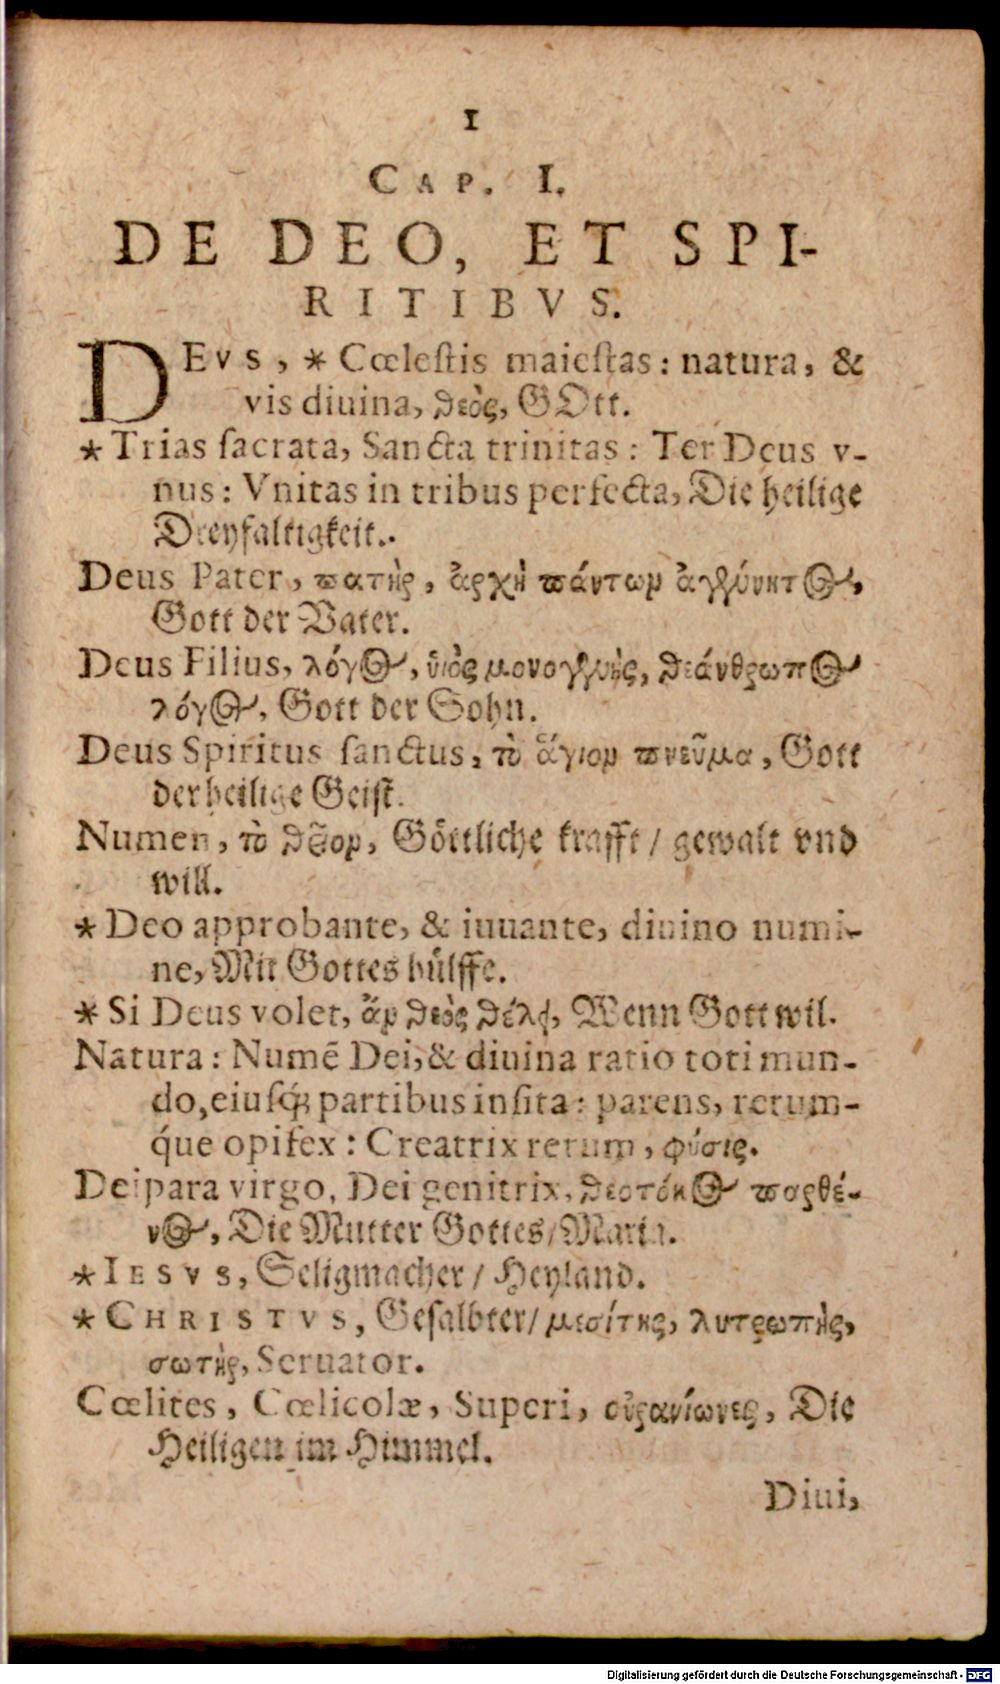 1
CAP. I.
DE DEO, ET SPI-
RITIBVS.
DEVS, * Cœlestis maiestas: natura, &
vis diuina, θεὸς, GOtt.
* Trias sacrata, Sancta trinitas: Ter Deus v-
nus: Vnitas in tribus perfecta, Die heilige
Dreyfaltigkeit.
Deus Pater, πατὴρ, ἀρχὴ πάντων ἀγγύνητος,
Gott der Vater.
Deus Filius, λόγος, ὑιὸς μονογενὴς, θεάνθρωπος
λόγος, Gott der Sohn.
Deus Spiritus sanctus, τὸ ἅγιον πνεῦμα, Gott
der heilige Geist.
Numen, τὸ θεῖον, Göttliche krafft / gewalt vnd
will.
* Deo approbante, & iuuante, diuino numi-
ne, Mit Gottes hülffe.
* Si Deus volet, ἂν θεὸς θέλῃ, Wenn Gott wil.
Natura: Numē Dei, & diuina ratio toti mun-
do, eiusq́; partibus insita: parens, rerum-
q́ue opifex: Creatrix rerum, φύσις.
Deipara virgo, Dei genitrix, θεοτόκος παρθέ-
νος, Die Mutter Gottes / Maria.
* IESVS, Seligmacher / Heyland.
* CHRISTVS, Gesalbter / μεσίτης, λυτρωτὴς,
σωτὴρ, Seruator.
Cœlites, Cœlicolæ, Superi, οὐρανίωνες, Die
Heiligen im Himmel.
Diui,
Digitalisierung gefördert durch die Deutsche Forschungsgemeinschaft - DFG